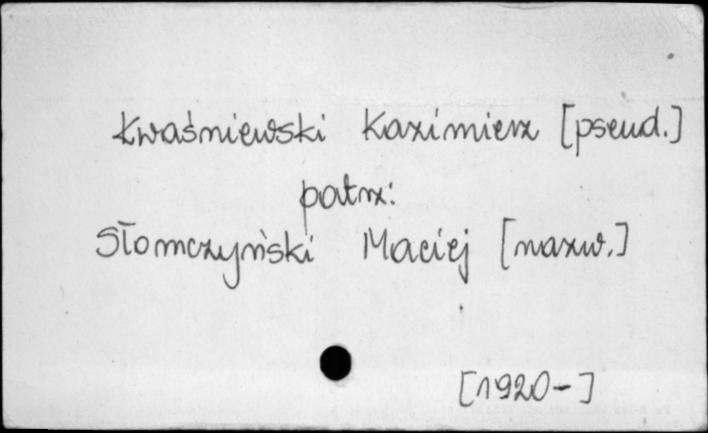 Kwaśniewski Kazimierz [pseud.]
patrz:
Słomczyński Maciej [nazw.]
[1920-]